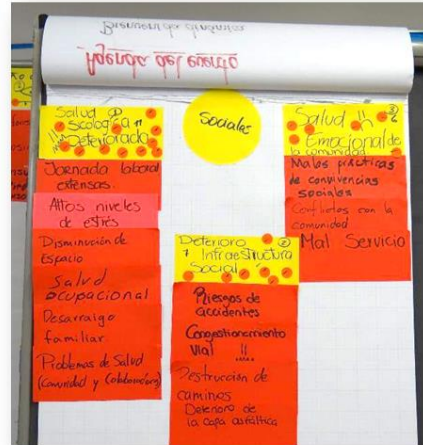 Bienvenida dinámica
Agenda del evento
Sociales
Salud
Deteriorada
Jornada laboral
extensas.
Altos niveles
de estrés
Disminución de
Espacio
Salud
ocupacional
Desarraigo
familiar.
Problemas de Salud
(Comunidad y Colaboradores)
Deterioro ②
7 Infraestructura
Social
Riesgos de
accidentes
Congestionamiento
Vial !!
Destrucción de
caminos
Deterioro de
la capa asfáltica
Salud !!
Emocional de
la comunidad
Malas prácticas
de convivencias
sociales
Conflictos con la
comunidad
Mal Servicio